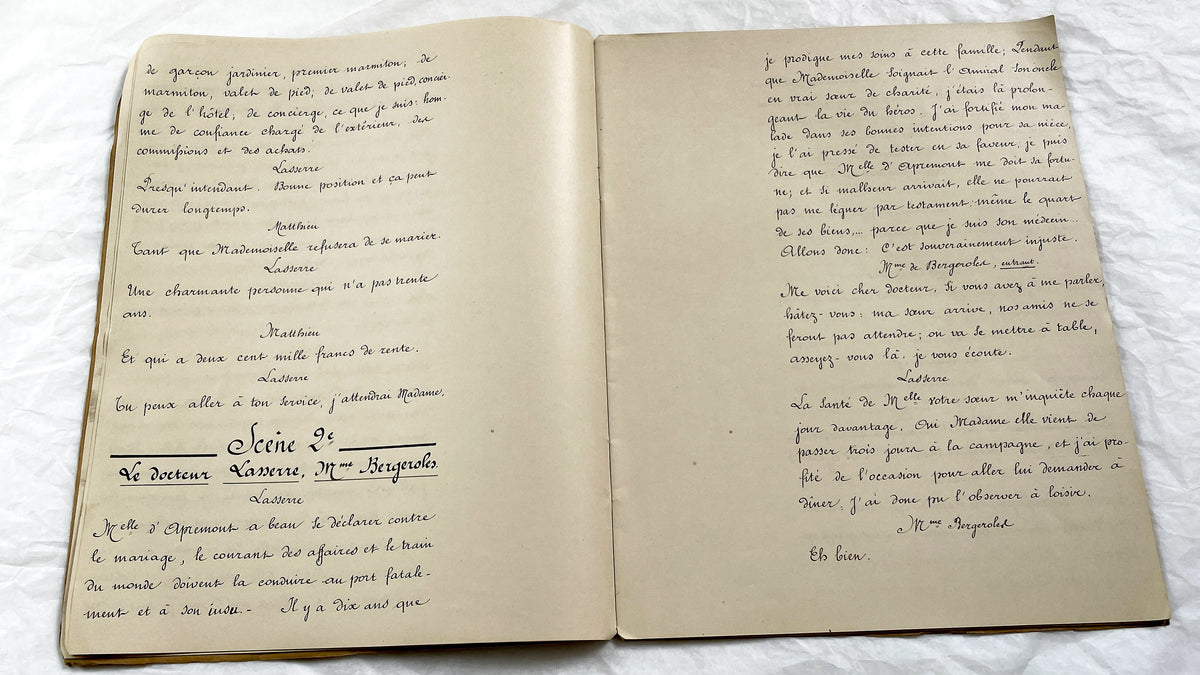 de garçon jardinier, premier marmiton; de
marmiton, valet de pied; de valet de pied, concier-
ge de l'hôtel; de concierge, ce que je suis: hom-
me de confiance chargé de l'extérieur, des
commissions et des achats.
Lasserre
Presqu'intendant. Bonne position et ça peut
durer longtemps.
Matthieu
Tant que Mademoiselle refusera de se marier.
Lasserre
Une charmante personne qui n'a pas trente
ans.
Matthieu
Et qui a deux cent mille francs de rente.
Lasserre
Tu peux aller à ton service, j'attendrai Madame.
Scène 2e
Le docteur Lasserre, Mme Bergeroles.
Lasserre
Melle d'Apremont a beau se déclarer contre
le mariage, le courant des affaires et le train
du monde doivent la conduire au port fatale-
ment et à son insu.- Il y a dix ans que
je prodigue mes soins à cette famille; Pendant
que Mademoiselle soignait l'Amiral son oncle
en vrai sœur de charité, j'étais là prolon-
geant la vie du héros. J'ai fortifié mon ma-
lade dans ses bonnes intentions pour sa nièce,
je l'ai pressé de tester en sa faveur; je puis
dire que Melle d'Apremont me doit sa fortu-
ne; et si malheur arrivait, elle ne pourrait
pas me léguer par testament, même le quart
de ses biens,... parce que je suis son médecin...
Allons donc: C'est souverainement injuste.
Mme de Bergeroles, entrant.
Me voici cher docteur. Si vous avez à me parler,
hâtez-vous: ma sœur arrive, nos amis ne se
feront pas attendre; on va se mettre à table,
asseyez-vous là. je vous écoute.
Lasserre
La santé de Melle votre sœur m'inquiète chaque
jour davantage. Oui Madame elle vient de
passer trois jours à la campagne, et j'ai pro-
fité de l'occasion pour aller lui demander à
dîner. J'ai donc pu l'observer à loisir.
Mme Bergeroles
Eh bien.